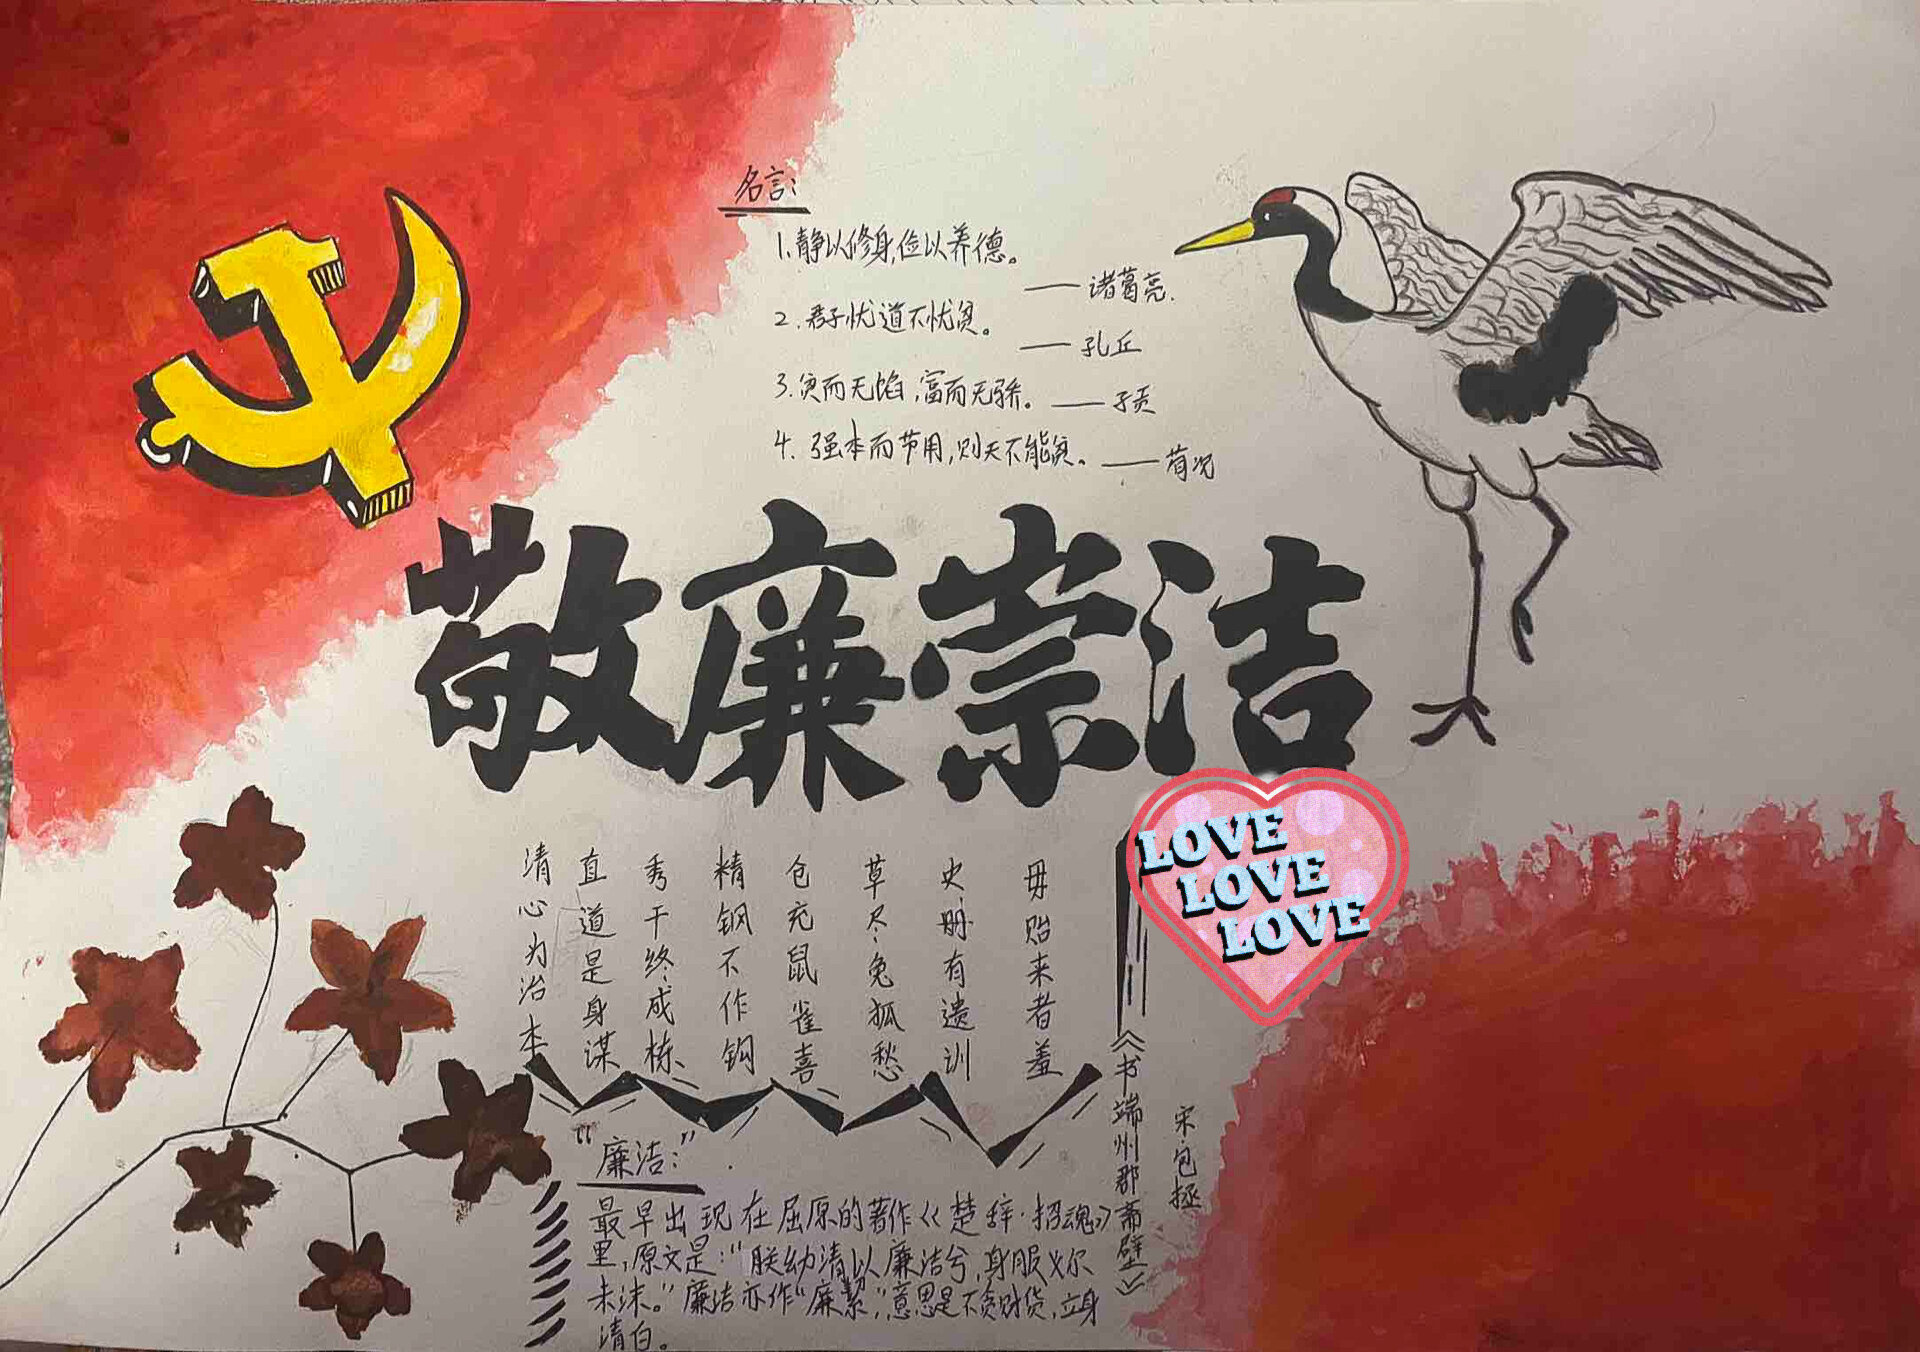 名言：
1.静以修身,俭以养德。
——诸葛亮.
2.君子忧道不忧贫。
——孔丘
3.贫而无馅,富而无骄。——子贡
4.强本而节用,则天不能贫。——荀况
敬廉崇洁
LOVE
LOVE
LOVE
清心为治本
直道是身谋
秀干终成栋
精钢不作钩
仓充鼠雀喜
草尽兔狐愁
史册有遗训
毋贻来者羞
《书端州郡斋壁》
宋·包拯
“廉洁：”
最早出现在屈原的著作《楚辞·招魂》
里,原文是：“朕幼清以廉洁兮,身服义尔
未沫。”廉洁亦作“廉絜”,意思是不贪财货,立身
清白。